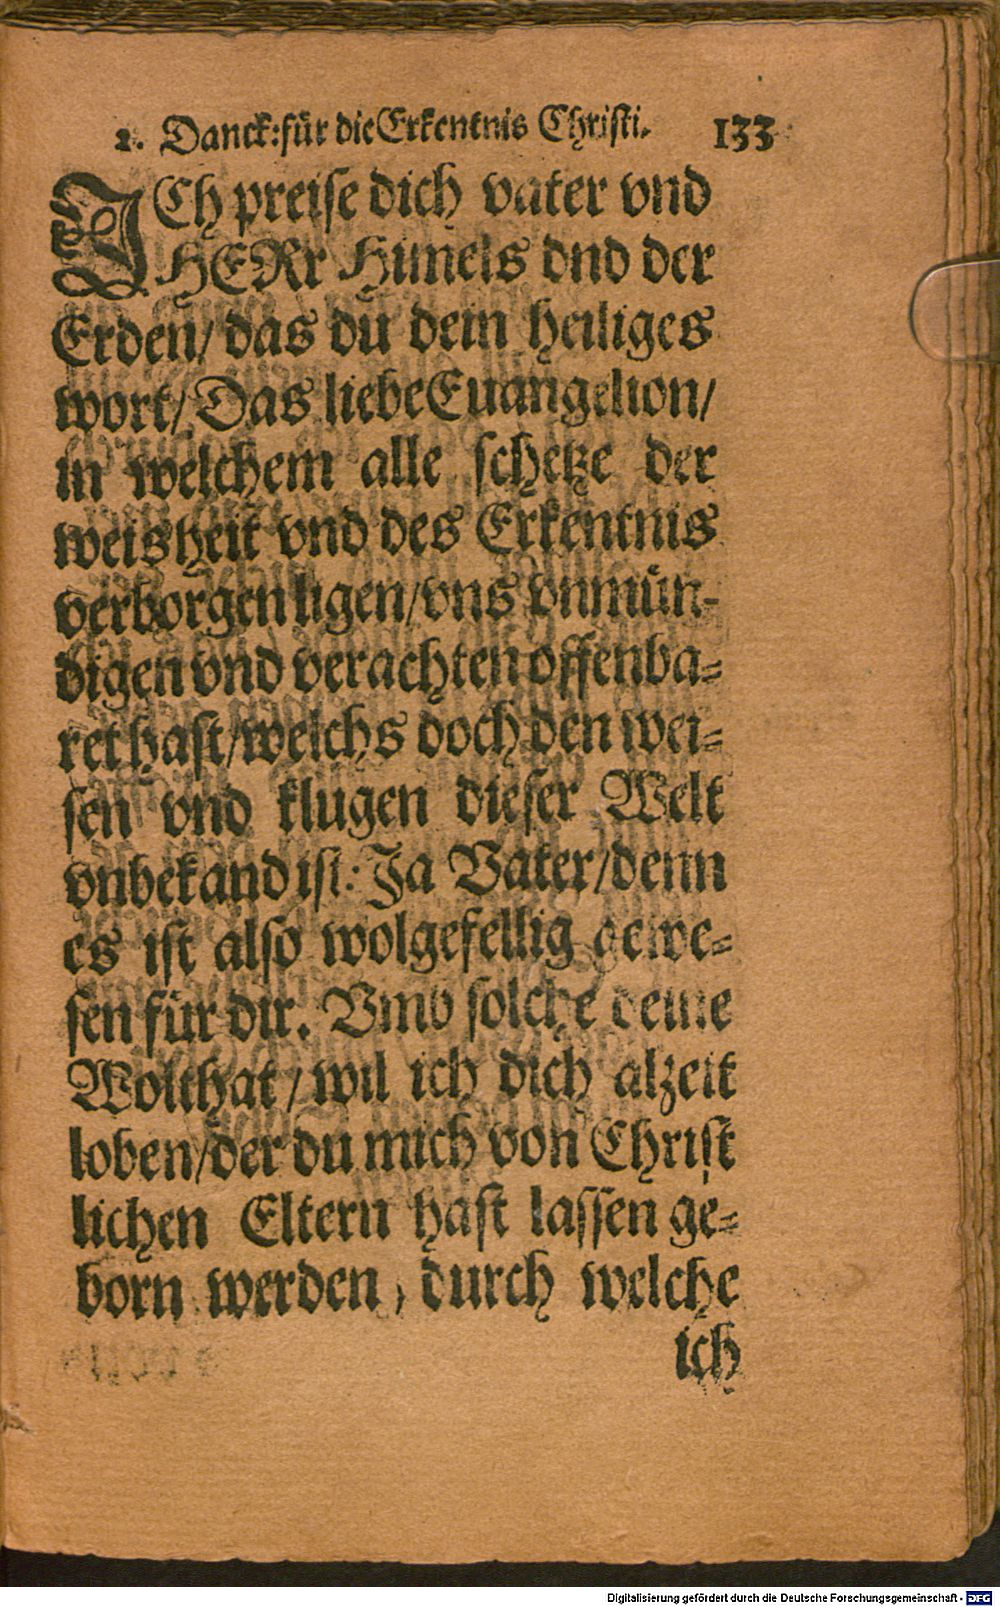 2. Danck: für die Erkentnis Christi. 133
ICh preise dich vater vnd
HERr Himels vnd der
Erden/ das du dein heiliges
wort/ Das liebe Euangelion/
in welchem alle schetze der
weisheit vnd des Erkentnis
verborgen ligen/ vns vnmün-
digen vnd verachten offenba-
ret hast/ welchs doch den wei-
sen vnd klugen dieser Welt
vnbekand ist: Ja Vater/ denn
es ist also wolgefellig gewe-
sen für dir. Vmb solche deine
Wolthat/ wil ich dich alzeit
loben/ der du mich von Christ
lichen Eltern hast lassen ge-
born werden, durch welche
ich
Digitalisierung gefördert durch die Deutsche Forschungsgemeinschaft - DFG